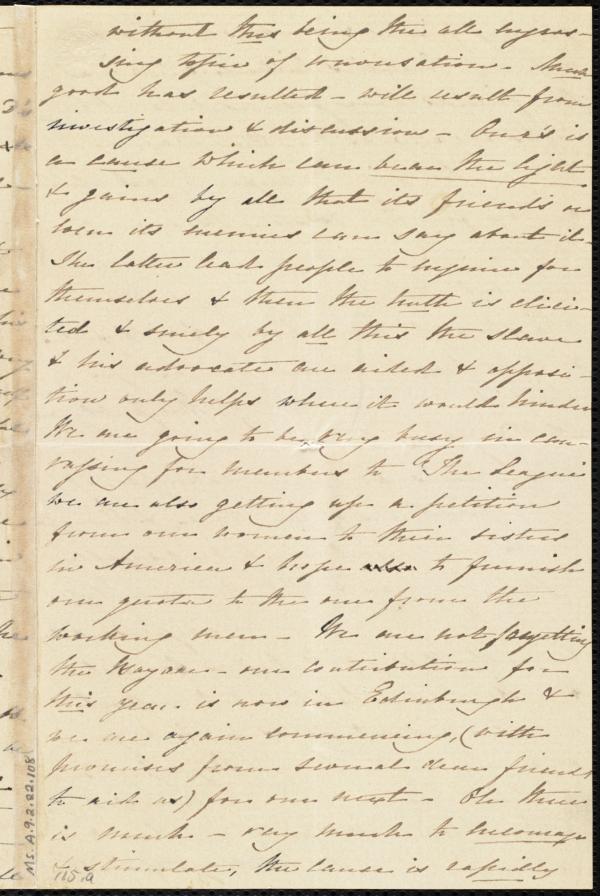 without this being the all engros-
sing topic of conversation - Much
good has resulted - will result from
investigation & discussion - Our's is
a cause which can bear the light
& gains by all that its friends or
even its enemies can say about it -
The latter lead people to enquire for
themselves & then the truth is elici-
ted & surely by all this the slave
& his advocate are aided & opposi-
tion only helps where it would hinder
We are going to be very busy in can-
vassing for members to "The League
we are also getting up a petition
from our women to their sisters
in America & hope to furnish
our quota to the one from the
working men - We are not forgetting
the Bazaar - our contribution for
this year is now in Edinburgh &
we are again commencing, (with
promises from several dear friends
to aid us) for our next - Oh there
is much - very much to encourage
& stimulate, the cause is rapidly
MS. A.9.2.22.108
115.a